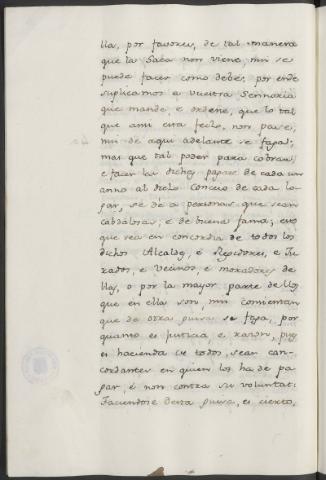 lla, por favores, de tal manera
que la Saca non viene, nin se
puede facer como debe; por ende
suplicamos a vuestra Sennoria
que mande e ordene, que lo tal
que ansi esta fecho, non pase;
nin de aqui adelante se faga:
mas que tal poder para cobrar
e facer las dichas pagas de cada un
anno al dicho Concejo de cada lo-
gar, se dé a personas que sean
cabdalosas, e de buena fama; e
que sea en concordia de todos los
dichos Alcaldes, é Regidores, e Ju-
rados, e vecinos, e moradores de
llos, o por la mayor parte dellos
que en ella son, nin consientan
que de otra guisa se faga, por
quanto es justicia, e razon, pues
es hacienda de todos, sean con-
cordantes en quien los ha de pa-
gar, é non contra su voluntat:
Faciendose desta guisa, es cierto,